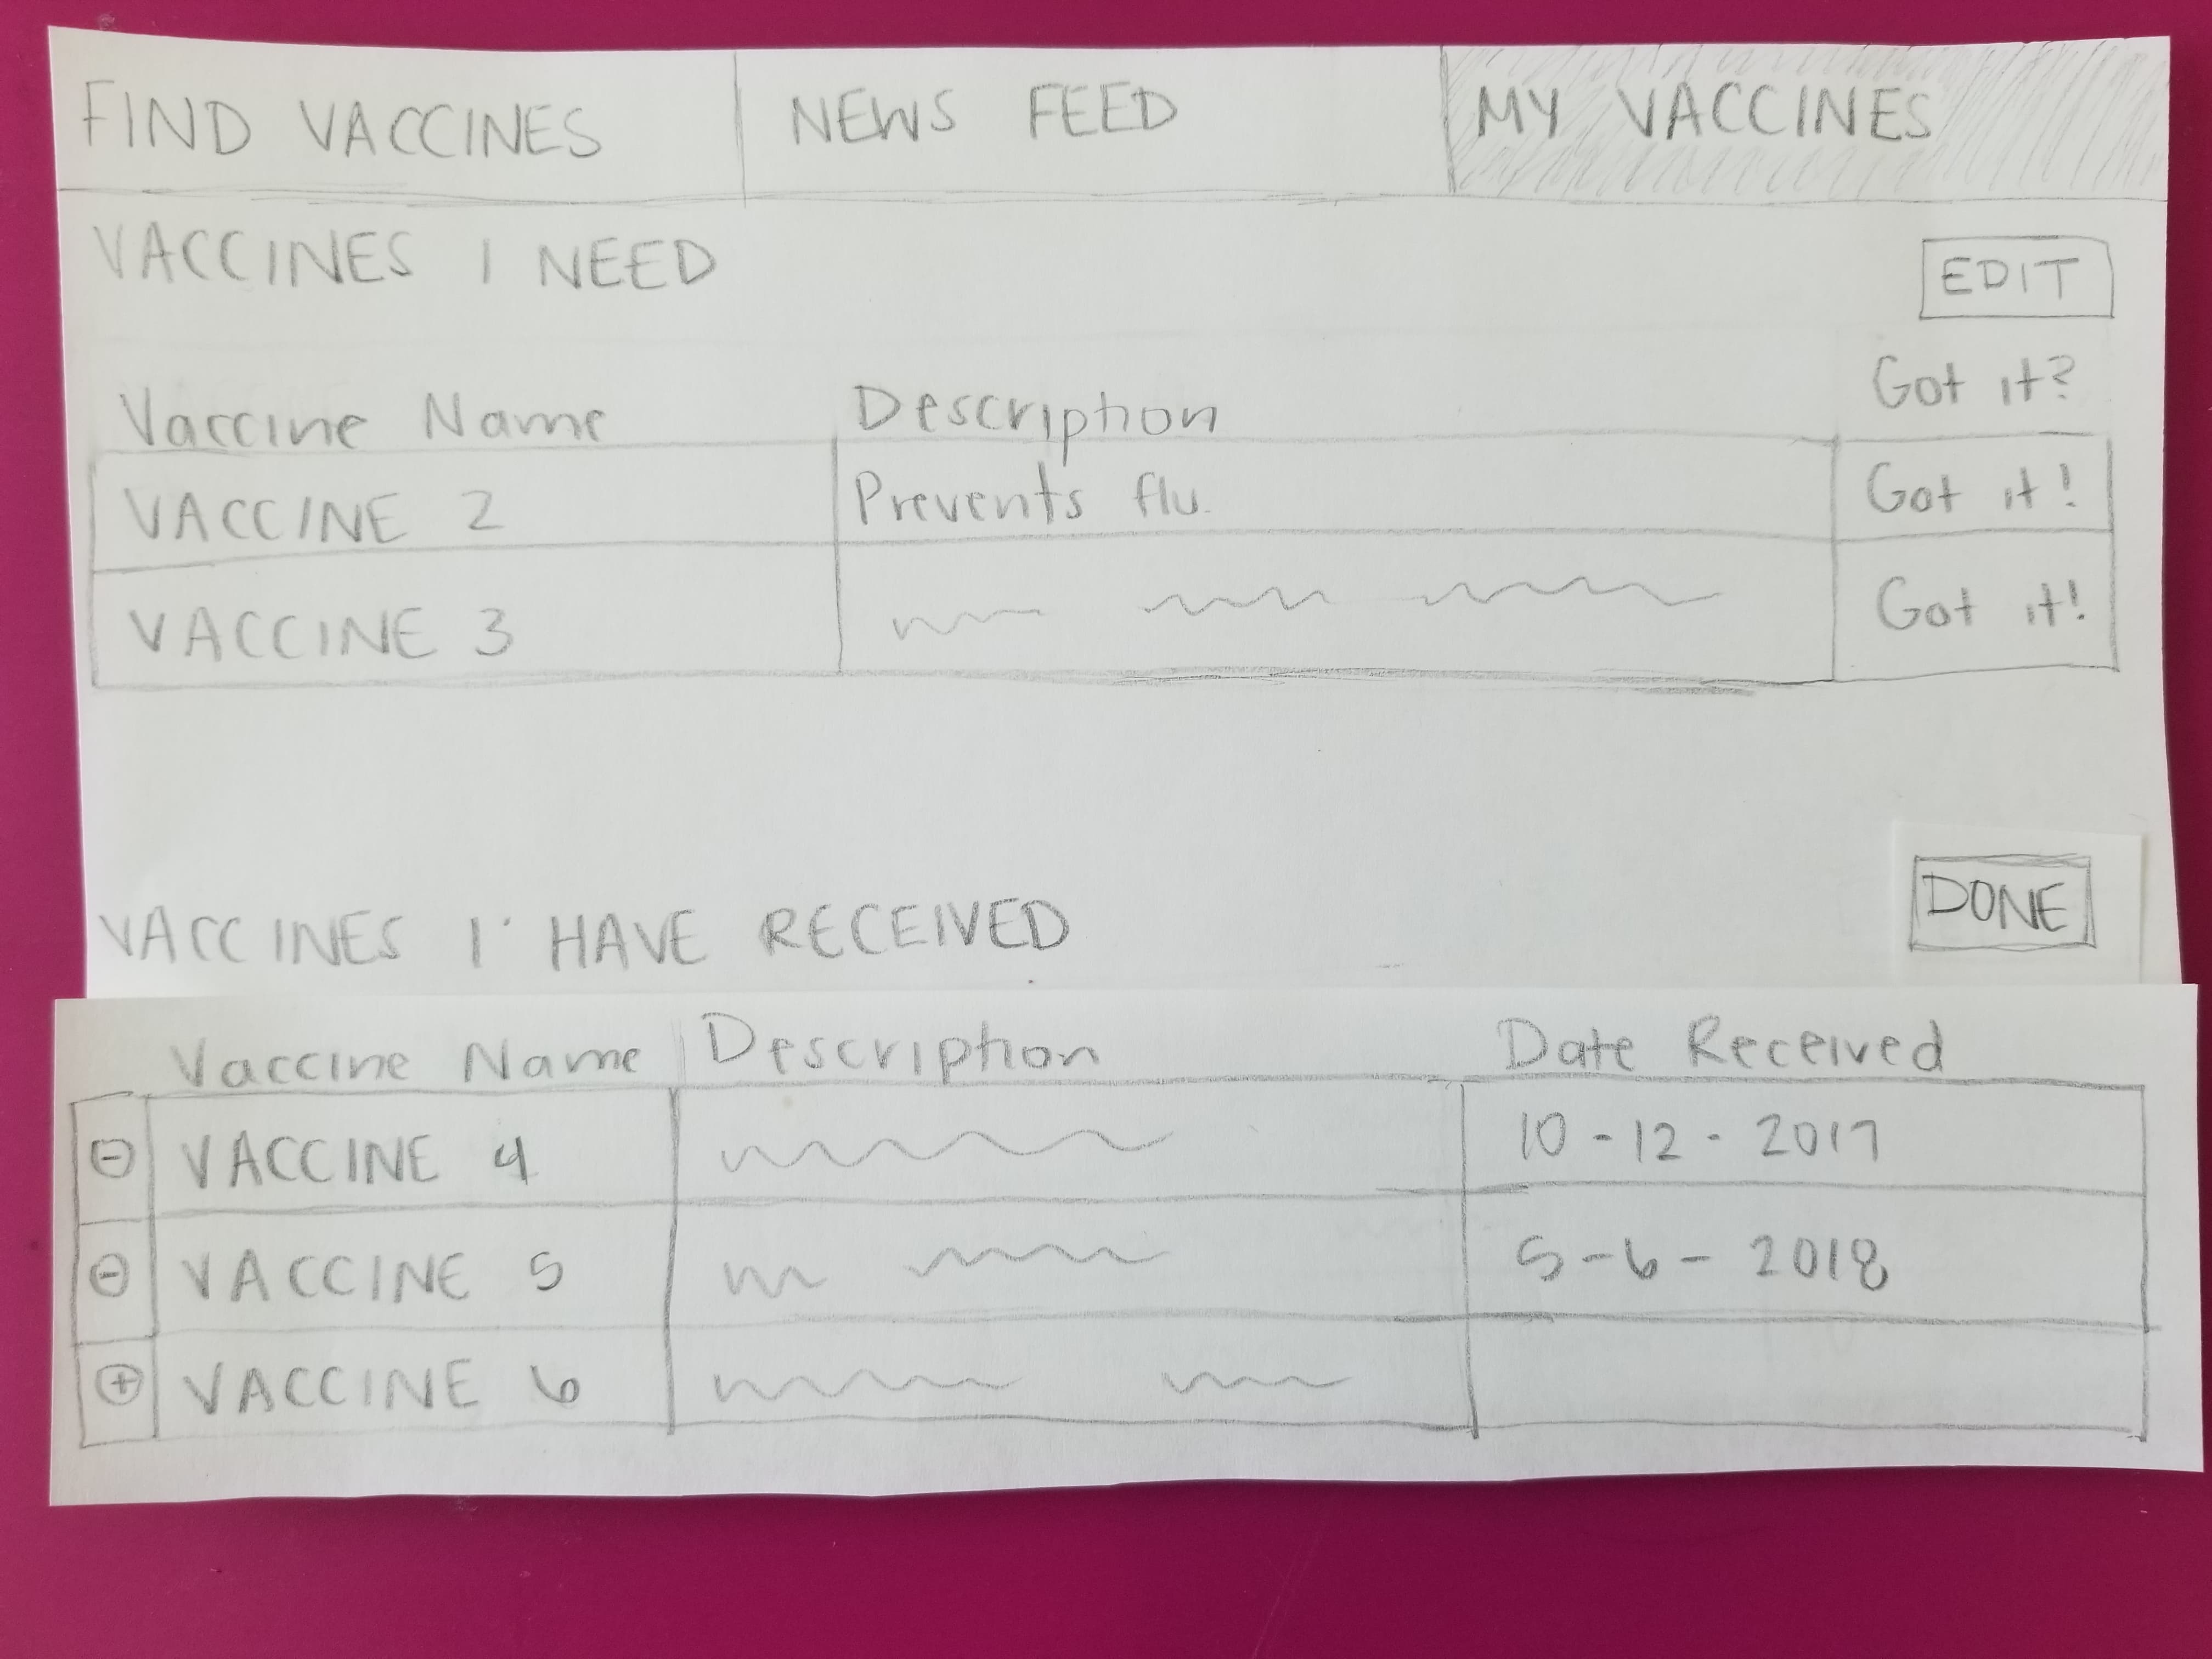 FIND VACCINES NEWS FEED MY VACCINES
VACCINES I NEED EDIT
Vaccine Name Description Got it?
VACCINE 2 Prevents flu. Got it!
VACCINE 3 Got it!
VACCINES I HAVE RECEIVED DONE
Vaccine Name Description Date Received
⊖ VACCINE 4 10-12-2017
⊖ VACCINE 5 5-6-2018
⊕ VACCINE 6